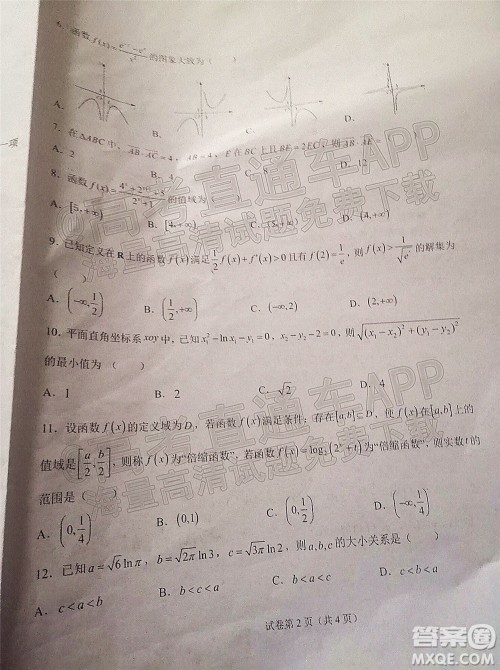 6. 函数f(x)=(e^{-x}-e^{x})/x²的图象大致为（  ）
A. B. C. D.
7. 在△ABC中, AB·AC=4, AB=4, E在BC上且BE=2EC, 则AB·AE=（  ）
A. 2 B. D. 12
8. 函数f(x)=(4^x+2^{x+1}+5)/(2^x+1)的值域为（  ）
A. [5,+∞) B. [4,+∞) C. (5,+∞) D. (4,+∞)
9. 已知定义在R上的函数f(x)满足1/2f(x)+f'(x)>0且有f(2)=1/e, 则f(x)>1/√(e^x)的解集为
（  ）
A. (-∞,1/2) B. (1/2,+∞) C. (-∞,2) D. (2,+∞)
10. 平面直角坐标系xoy中, 已知x₁²-lnx₁-y₁=0, x₂-y₂-2=0, 则√((x₁-x₂)²+(y₁-y₂)²)
的最小值为（  ）
A. 1 B. 2 C. √2 D. 4
11. 设函数f(x)的定义域为D, 若函数f(x)满足条件: 存在[a,b]⊆D, 使f(x)在[a,b]上的
值域是[a/2,b/2], 则称f(x)为“倍缩函数”, 若函数f(x)=log₂(2^x+t)为“倍缩函数”, 则实数t的
范围是（  ）
A. (0,1/4) B. (0,1) C. (0,1/2) D. (-∞,1/4)
12. 已知a=√6lnπ, b=√(2π)ln3, c=√(3π)ln2, 则a,b,c的大小关系是（  ）
A. c<a<b B. b<c<a C. c<b<a D. b<a<c
试卷第2页（共4页）
一项
@高考直通车APP
海量高清试题免费下载
高考直通车APP
海量高清试题免费下载
答案圈
MXQE.COM